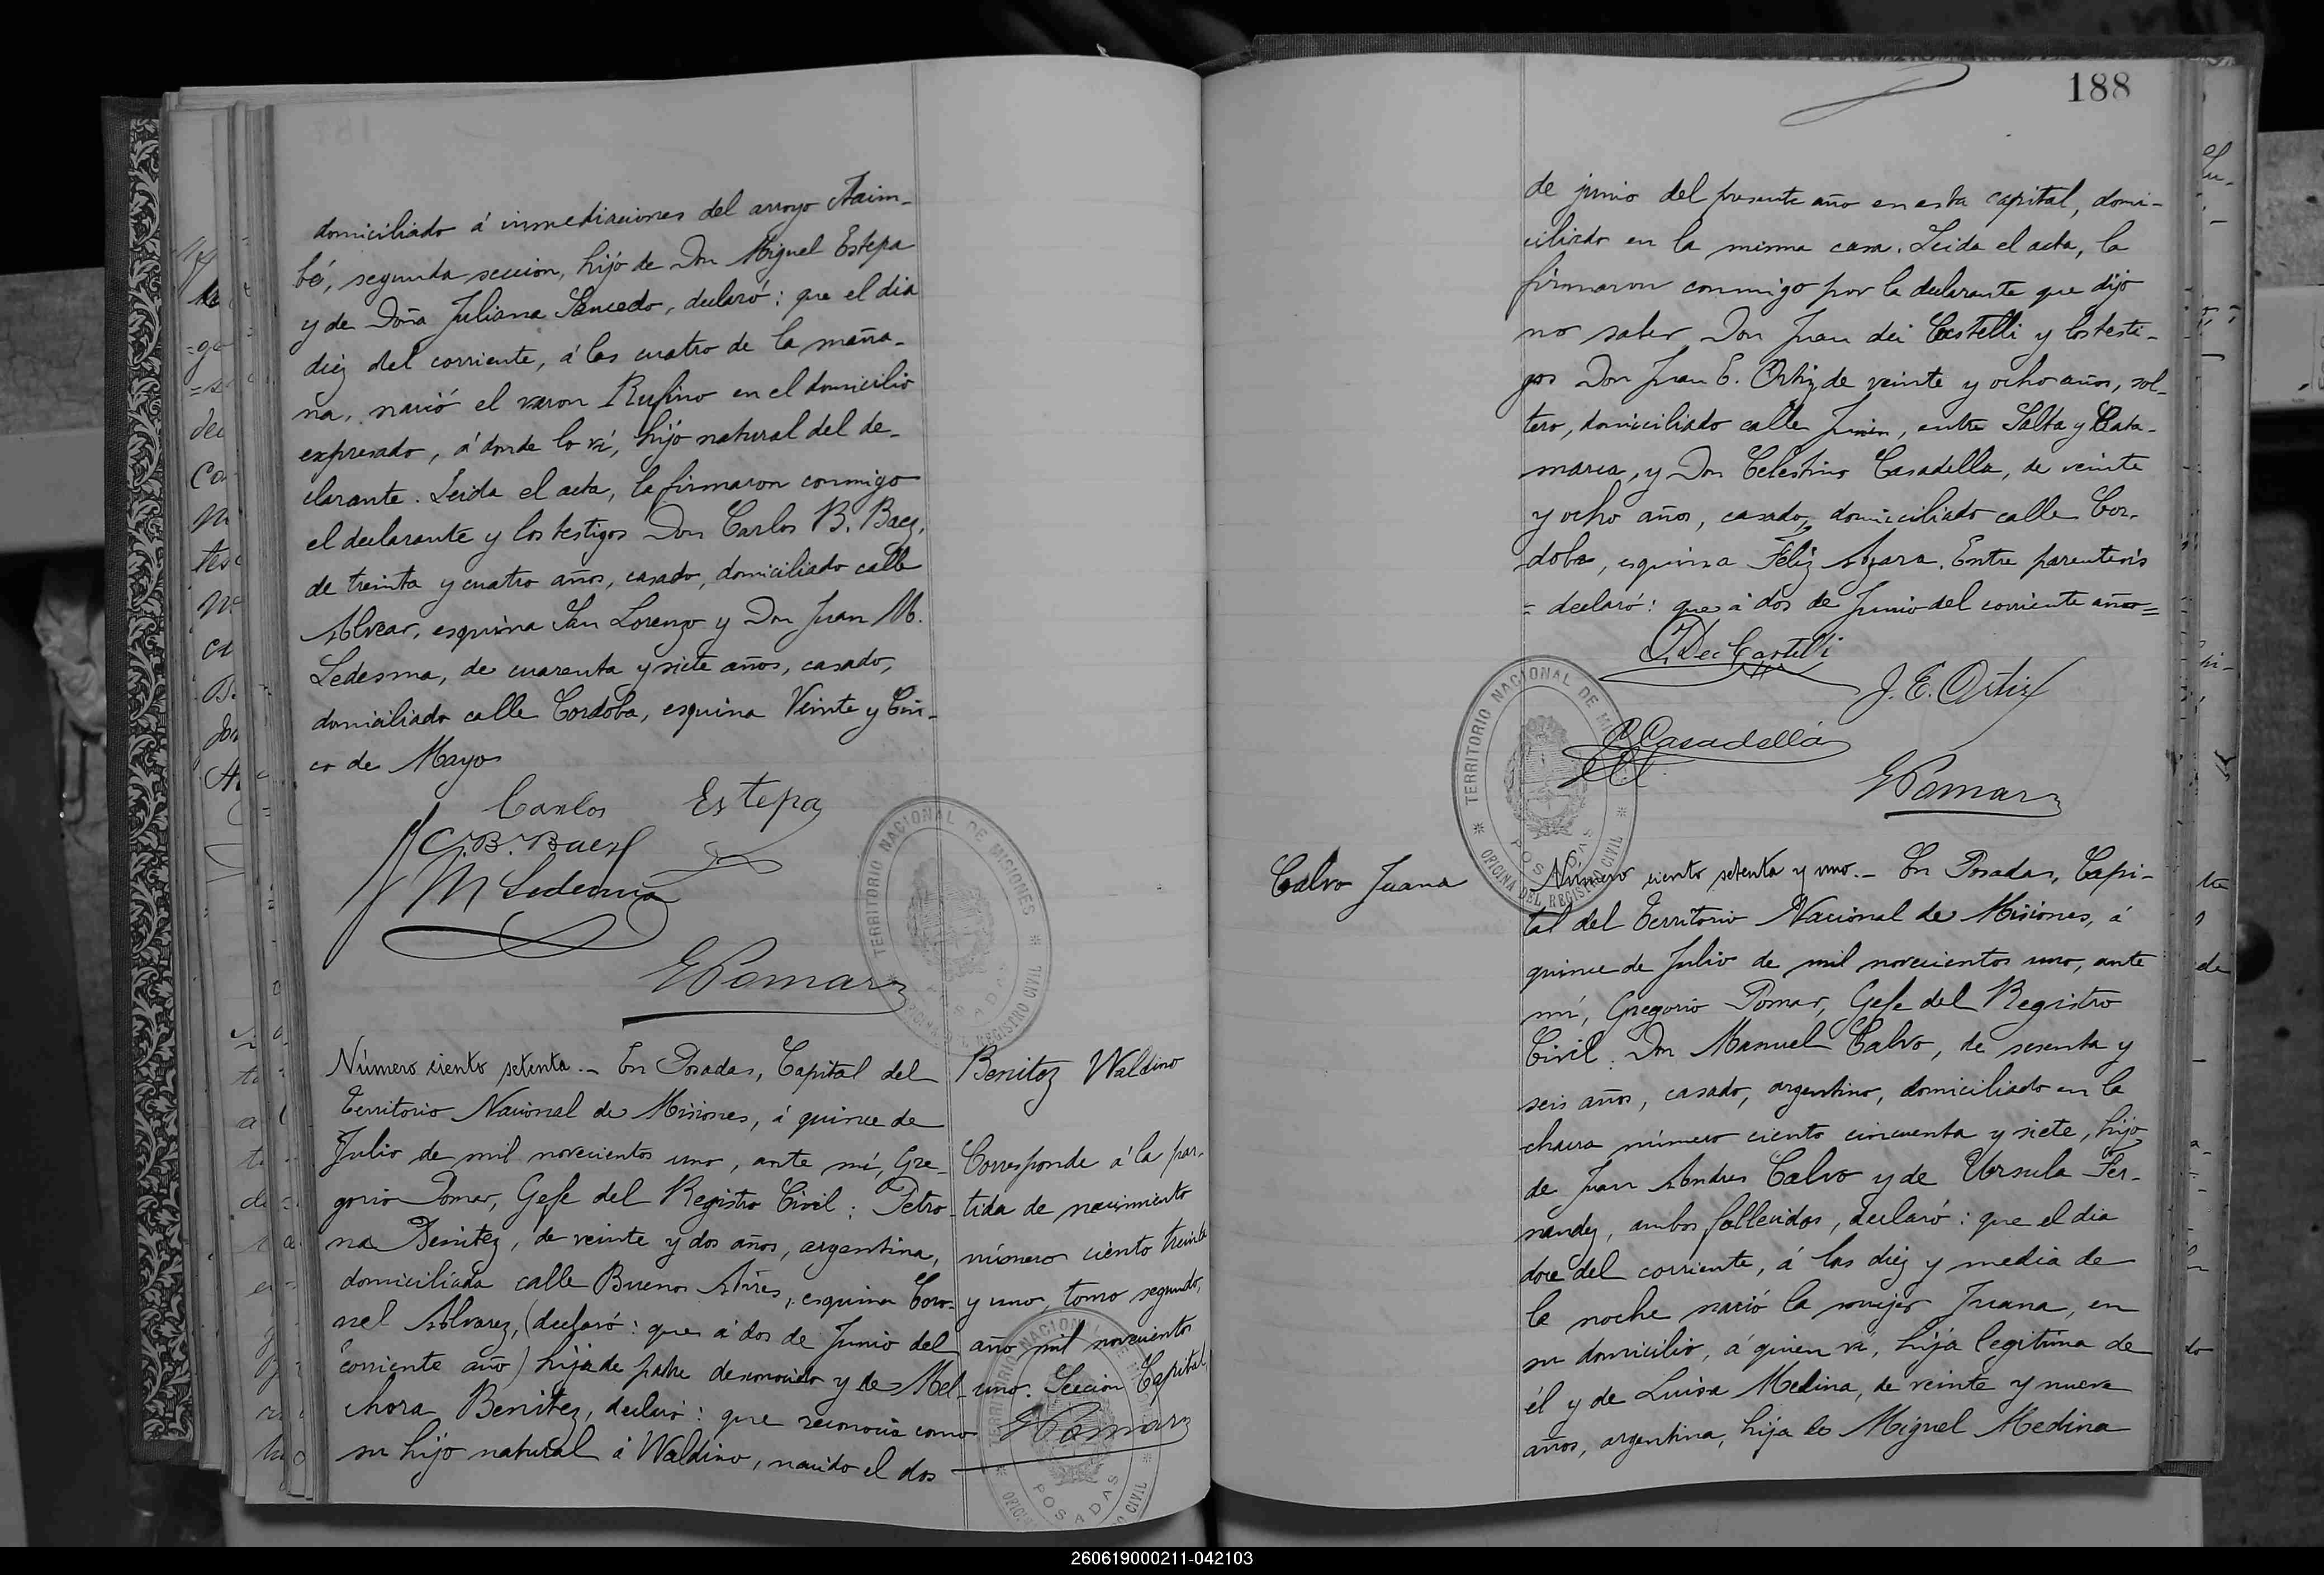 domiciliado á inmediaciones del arroyo Itaim-
bé, segunda seccion, hijo de Don Miguel Estepa
y de Doña Juliana Saucedo, declaró: que el dia
diez del corriente, á las cuatro de la maña-
na, nació el varon Rufino en el domicilio
expresado, á donde lo ví, hijo natural del de-
clarante. Leida el acta, la firmaron conmigo
el declarante y los testigos Don Carlos B. Baez,
de treinta y cuatro años, casado, domiciliado calle
Alvear, esquina San Lorenzo y Don Juan M.
Ledesma, de cuarenta y siete años, casado,
domiciliado calle Cordoba, esquina Veinte y Cin-
co de Mayo
Carlos Estepa
C. B. Baez
M Ledesma
G Pomar
TERRITORIO NACIONAL DE MISIONES
OFICINA DEL REGISTRO CIVIL
POSADAS
Número ciento setenta.- En Posadas, Capital del
Territorio Nacional de Misiones, á quince de
Julio de mil novecientos uno, ante mí, Gre-
gorio Pomar, Gefe del Registro Civil: Petro-
na Benitez, de veinte y dos años, argentina,
domiciliada calle Buenos Aires, esquina Coro-
nel Alvarez, (declaró: que á dos de Junio del
corriente año) hija de padre desconocido y de Mel-
chora Benitez, declaró: que reconocía como
su hijo natural á Waldino, nacido el dos
Benitez Waldino
Corresponde á la par-
tida de nacimiento
número ciento treinta
y uno, tomo segundo,
año mil novecientos
uno. Seccion Capital
G Pomar
POSADAS
188
de junio del presente año en esta capital, domi-
ciliado en la misma casa. Leida el acta, la
firmaron conmigo por la declarante que dijo
no saber Don Juan dei Castelli y los testi-
gos Don Juan E. Ortiz de veinte y ocho años, sol-
tero, domiciliado calle Junin, entre Salta y Cata-
marca, y Don Celestino Casadella, de veinte
y ocho años, casado, domiciliado calle Cor-
doba, esquina Feliz Azara. Entre parentesis
= declaró: que á dos de Junio del corriente año=
J. Dei Castelli
J. E. Ortiz
C Casadella
G Pomar
TERRITORIO NACIONAL DE MISIONES
OFICINA DEL REGISTRO CIVIL
POSADAS
Calvo Juana
Número ciento setenta y uno.- En Posadas, Capi-
tal del Territorio Nacional de Misiones, á
quince de Julio de mil novecientos uno, ante
mí, Gregorio Pomar, Gefe del Registro
Civil: Don Manuel Calvo, de sesenta y
seis años, casado, argentino, domiciliado en la
chacra número ciento cincuenta y siete, hijo
de Juan Andres Calvo y de Ursula Fer-
nandez, ambos fallecidos, declaró: que el dia
doce del corriente, á las diez y media de
la noche nació la mujer Juana, en
su domicilio, á quien ví, hija legitima de
él y de Luisa Medina, de veinte y nueve
años, argentina, hija de Miguel Medina
260619000211-042103